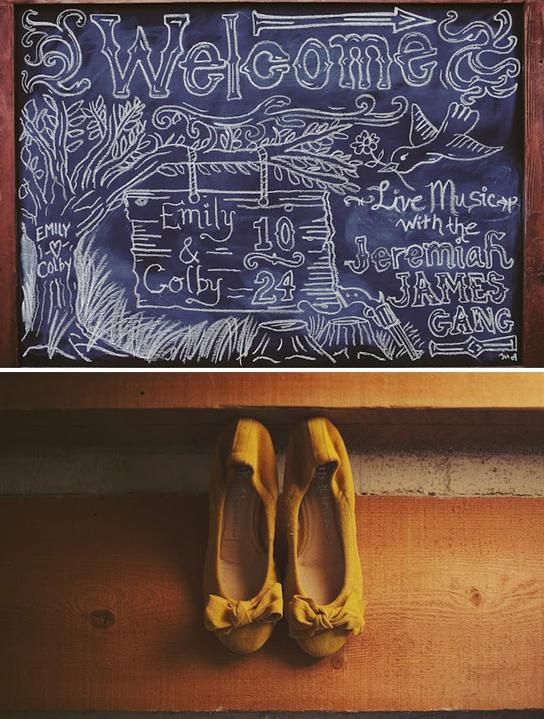 Welcome
EMILY
Colby
Emily
&
Colby
10
24
Live Music
with the
Jeremiah
JAMES
GANG